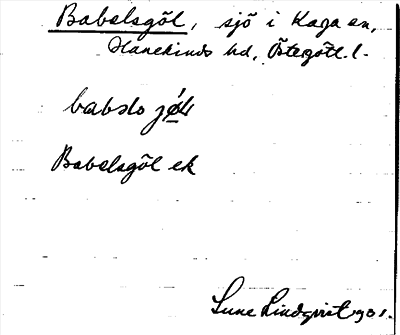 Babelsgöl, sjö i Kaga sn,
Hanekinds hd, Östergötl. l.
Babelsgöl ek
Sune Lindqvist 1901.